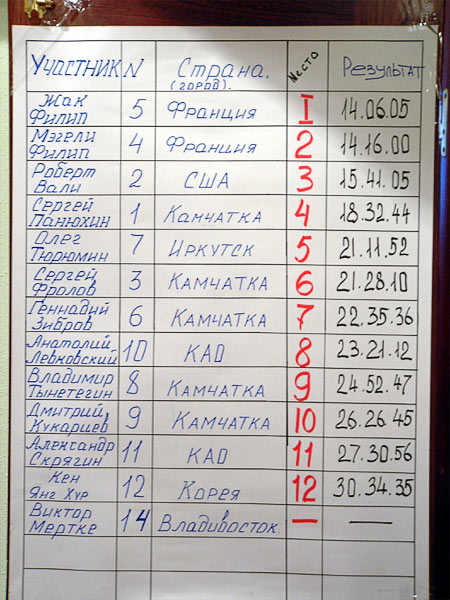 Участник N Страна. (город). Место Результат
Жак Филип 5 Франция I 14.06.05
Мэгели Филип 4 Франция 2 14.16.00
Роберт Вали 2 США 3 15.41.05
Сергей Панюхин 1 Камчатка 4 18.32.44
Олег Тюрюмин 7 Иркутск 5 21.11.52
Сергей Фролов 3 Камчатка 6 21.28.10
Геннадий Зибров 6 Камчатка 7 22.35.36
Анатолий Левковский 10 КАО 8 23.21.12
Владимир Тынетегин 8 Камчатка 9 24.52.47
Дмитрий Кукарцев 9 Камчатка 10 26.26.45
Александр Скрягин 11 КАО 11 27.30.56
Кен Янг Хур 12 Корея 12 30.34.35
Виктор Мертке 14 Владивосток. — —